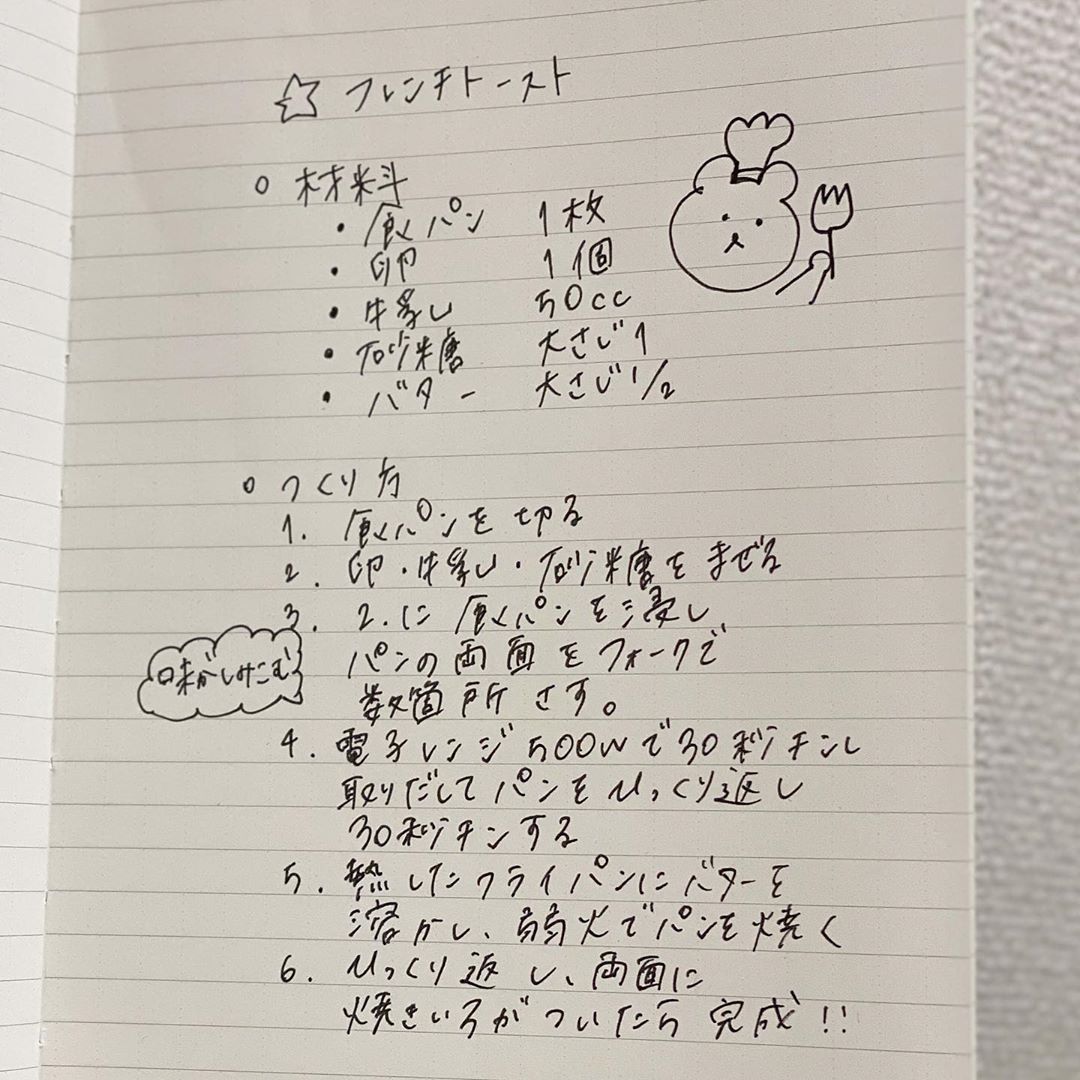 ☆ フレンチトースト
○ 材料
・食パン 1枚
・卵 1個
・牛乳 50cc
・砂糖 大さじ1
・バター 大さじ1/2
○ つくり方
1. 食パンを切る
2. 卵・牛乳・砂糖をまぜる
3. 2.に食パンを浸し
パンの両面をフォークで
数箇所さす。
味がしみこむ
4. 電子レンジ500Wで30秒チンし
取りだしてパンをひっくり返し
30秒チンする
5. 熱したフライパンにバターを
溶かし、弱火でパンを焼く
6. ひっくり返し、両面に
焼きいろがついたら完成!!